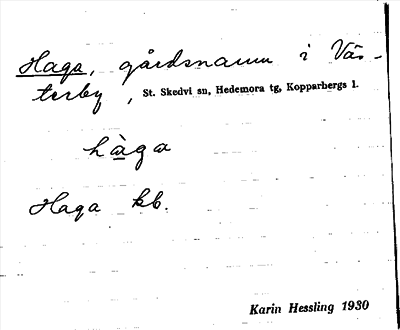 Haga, gårdsnamn i Väs-
terby, St. Skedvi sn, Hedemora tg, Kopparbergs l.
hàga
Haga kb.
Karin Hessling 1930